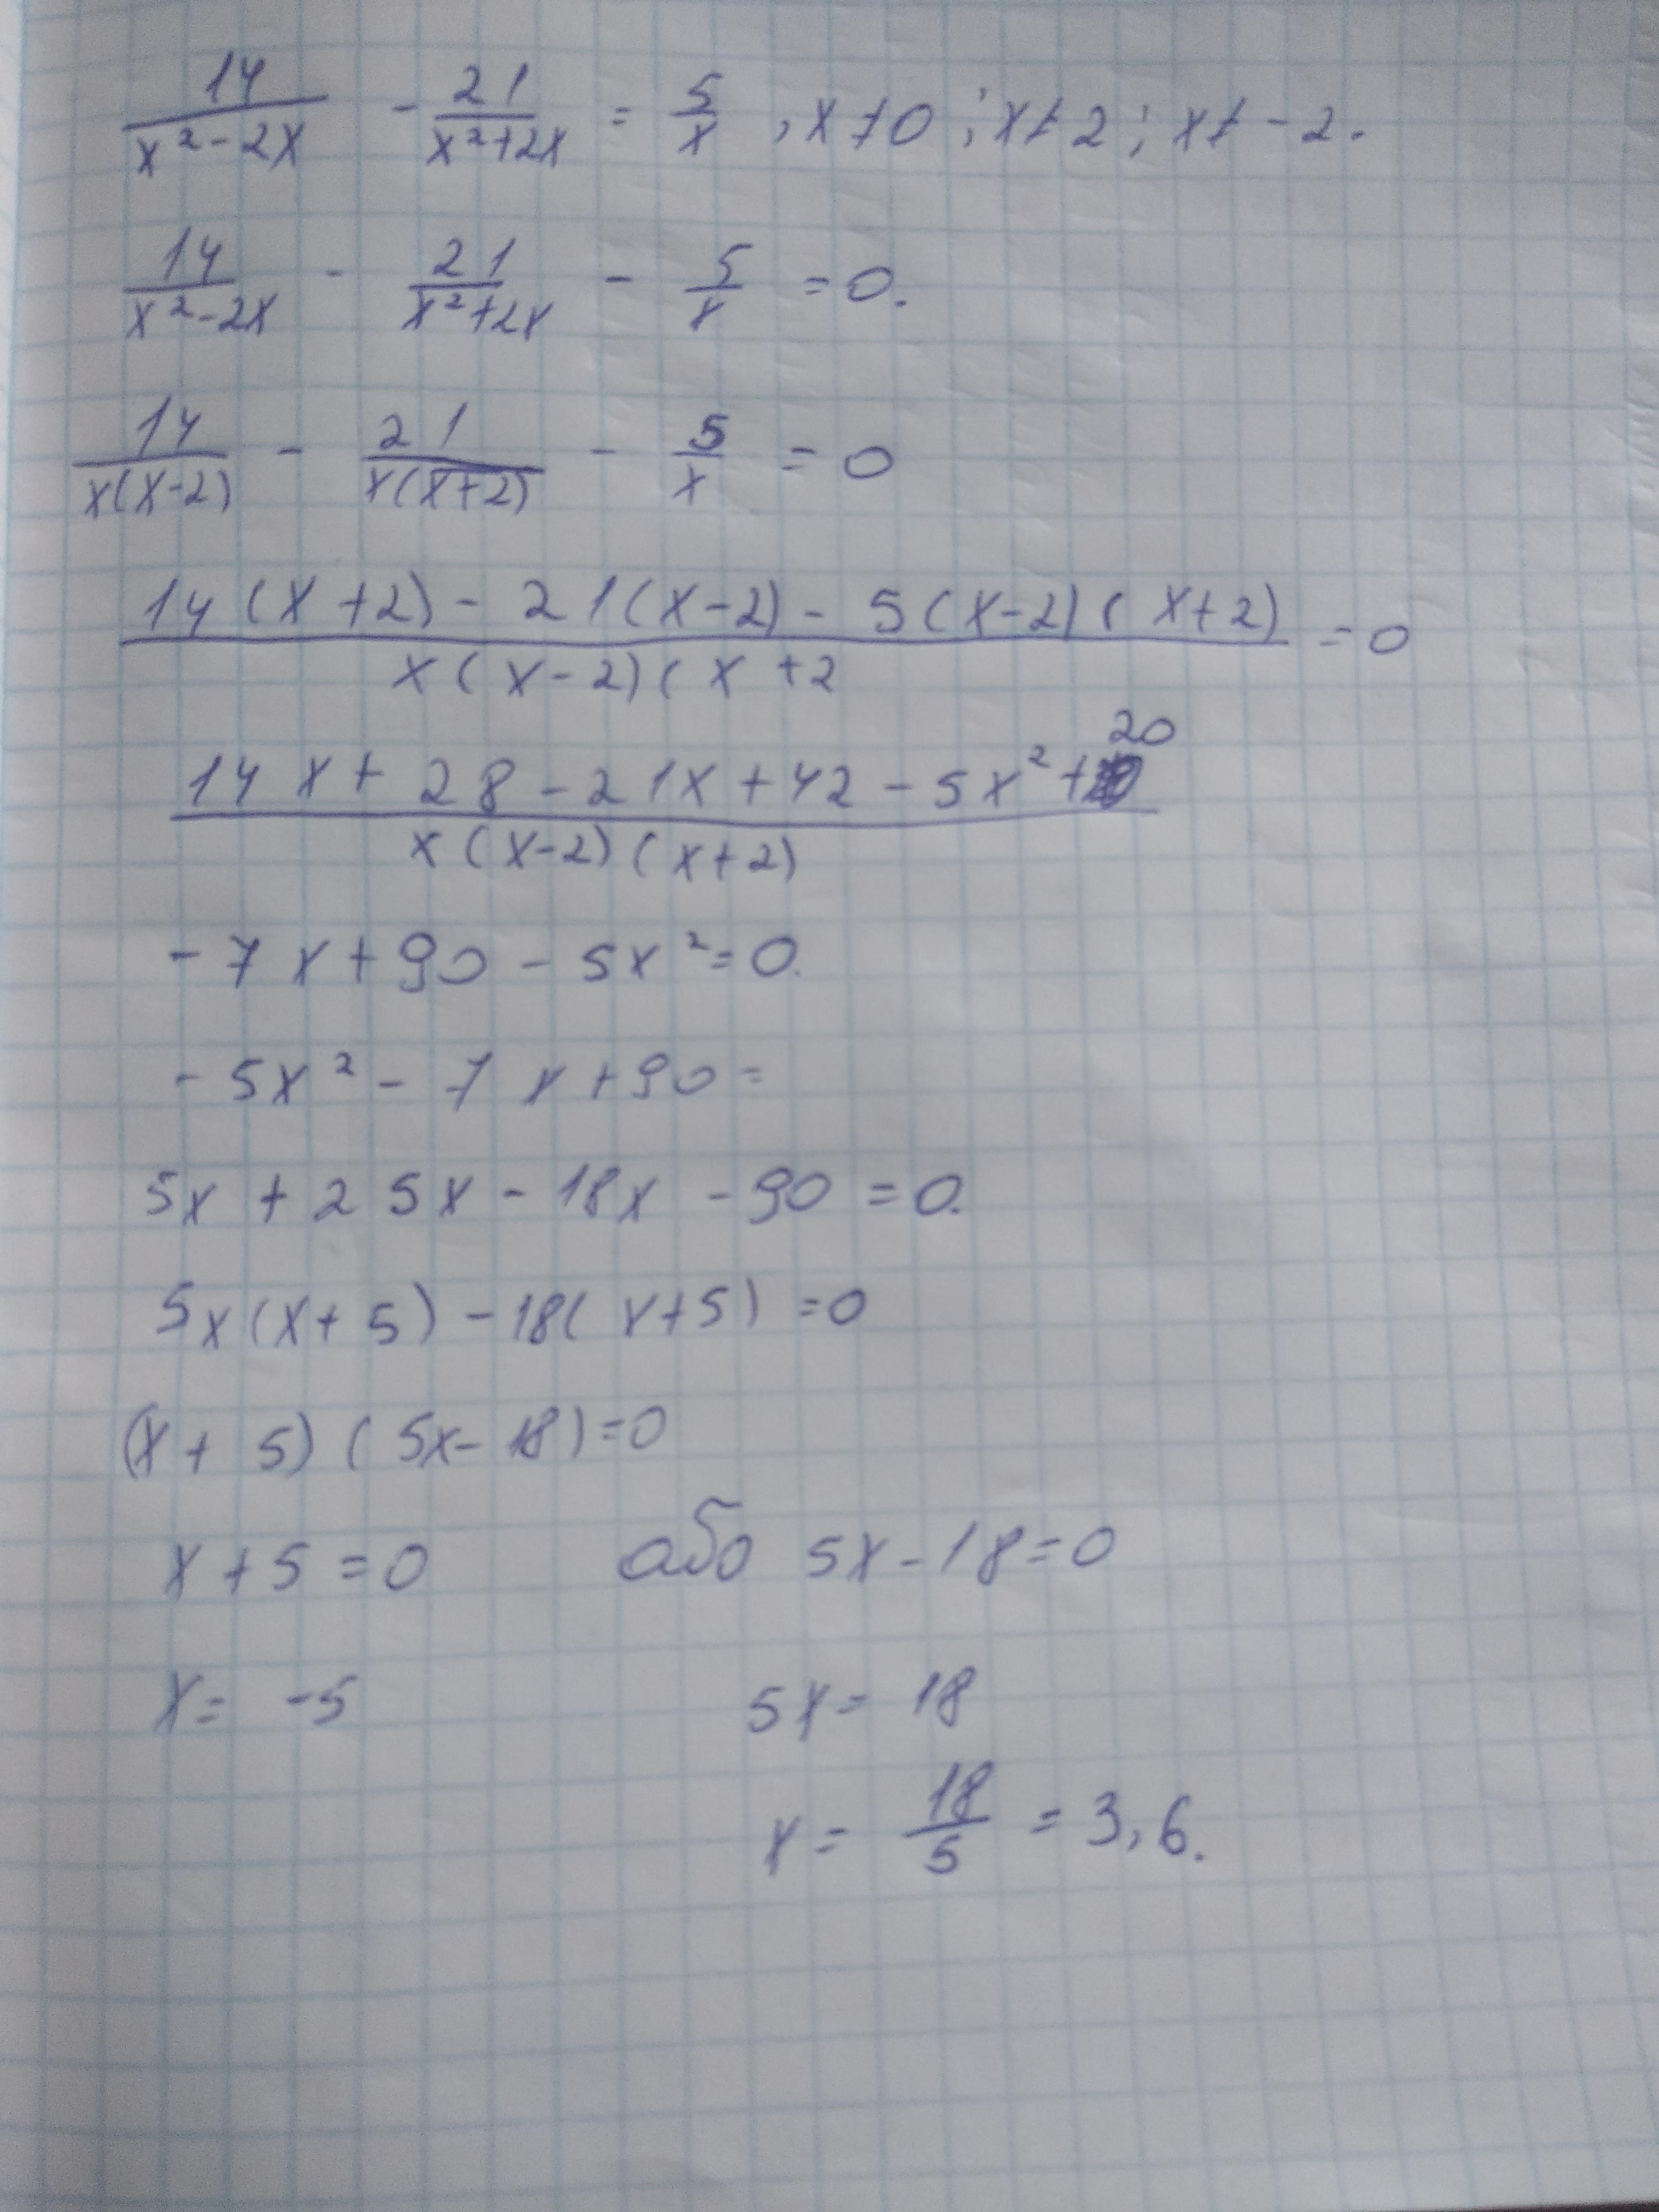 14/(x²-2x) - 21/(x²+2x) = 5/x , x≠0 ; x≠2 ; x≠-2.
14/(x²-2x) - 21/(x²+2x) - 5/x = 0.
14/(x(x-2)) - 21/(x(x+2)) - 5/x = 0
(14(x+2) - 21(x-2) - 5(x-2)(x+2))/(x(x-2)(x+2) = 0
(14x + 28 - 21x + 42 - 5x² + 20)/(x(x-2)(x+2))
-7x + 90 - 5x² = 0.
-5x² - 7x + 90 =
5x + 25x - 18x - 90 = 0.
5x(x+5) - 18(x+5) = 0
(x+5)(5x-18) = 0
x + 5 = 0 або 5x - 18 = 0
x = -5 5x = 18
x = 18/5 = 3,6.